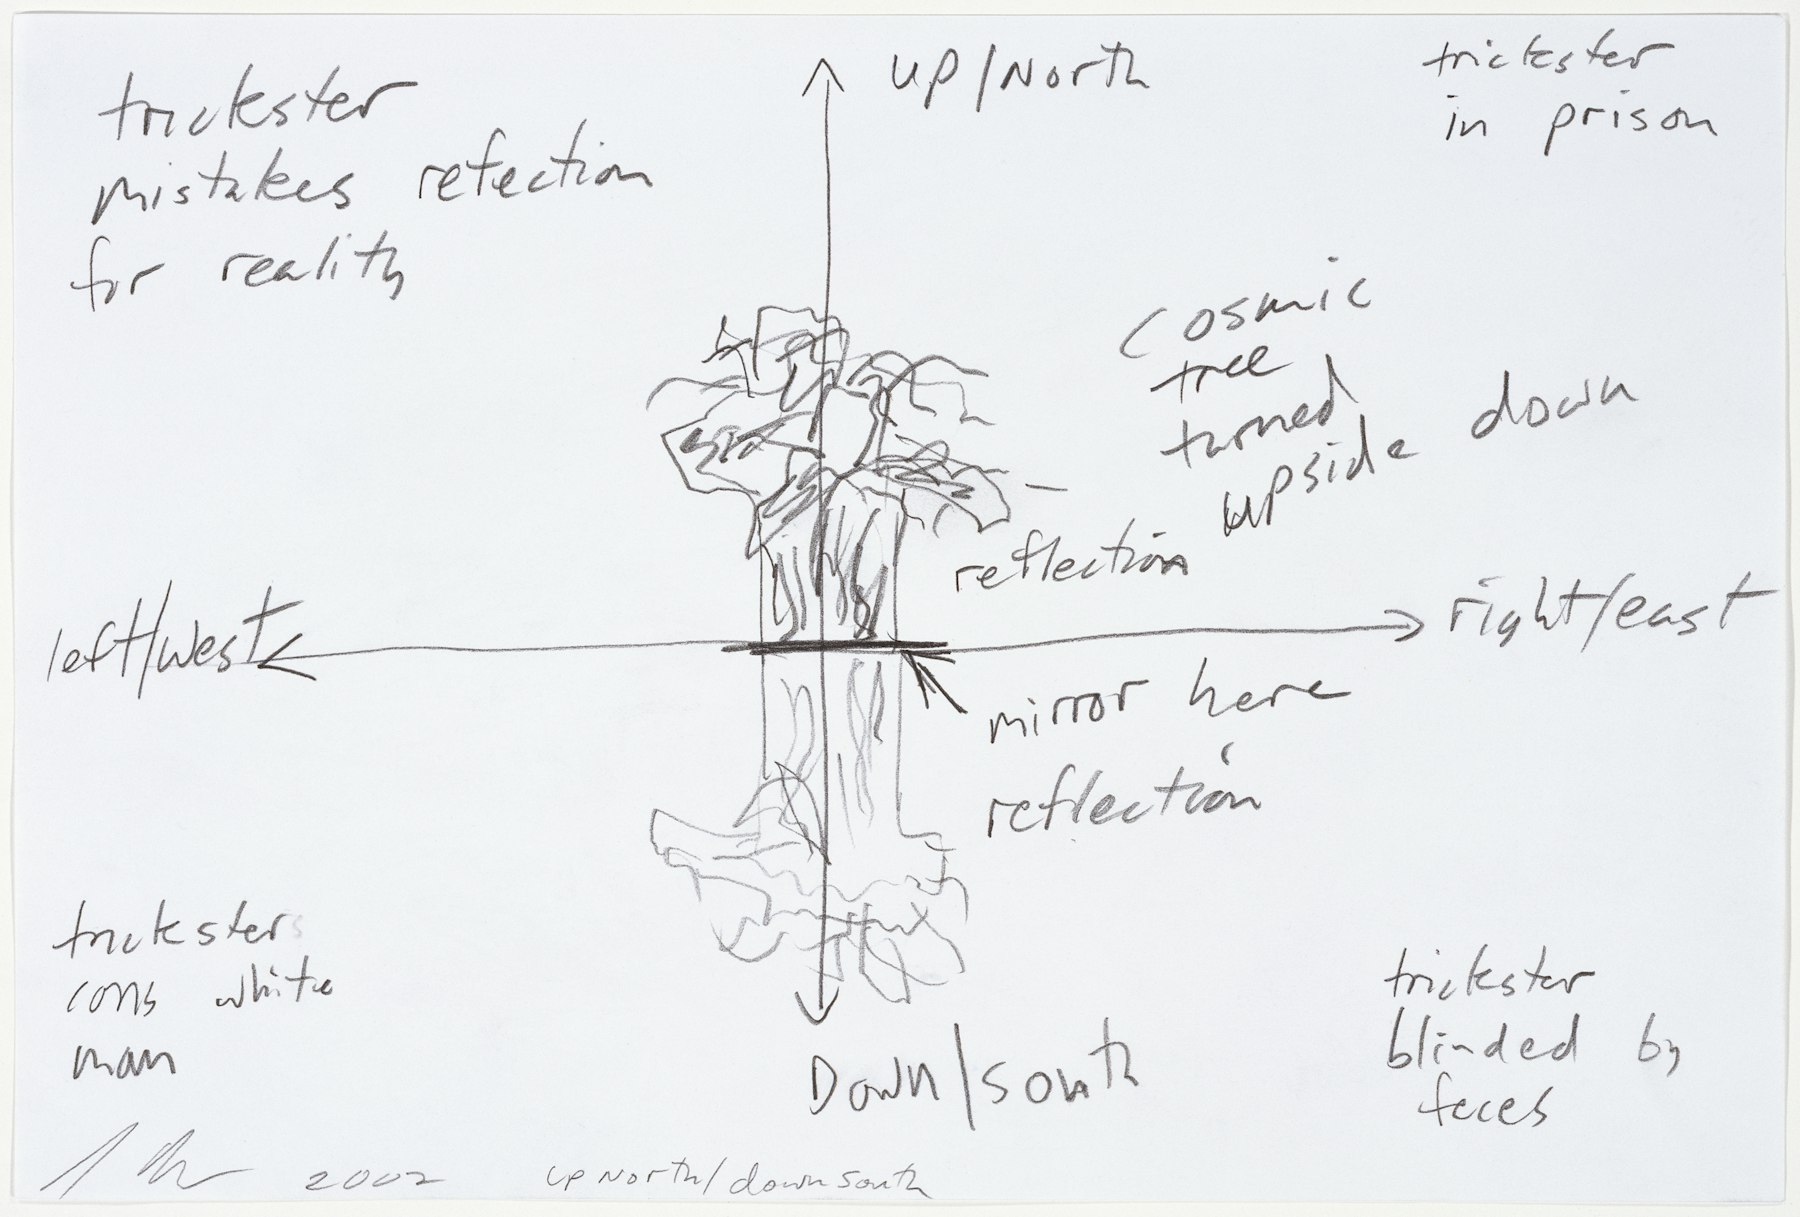 trickster
mistakes refection
for reality
UP/North
trickster
in prison
cosmic
tree
turned
upside down
reflection
left/west
right/east
mirror here
reflection
tricksters
cons white
man
Down/south
trickster
blinded by
feces
2002
UP North/down south